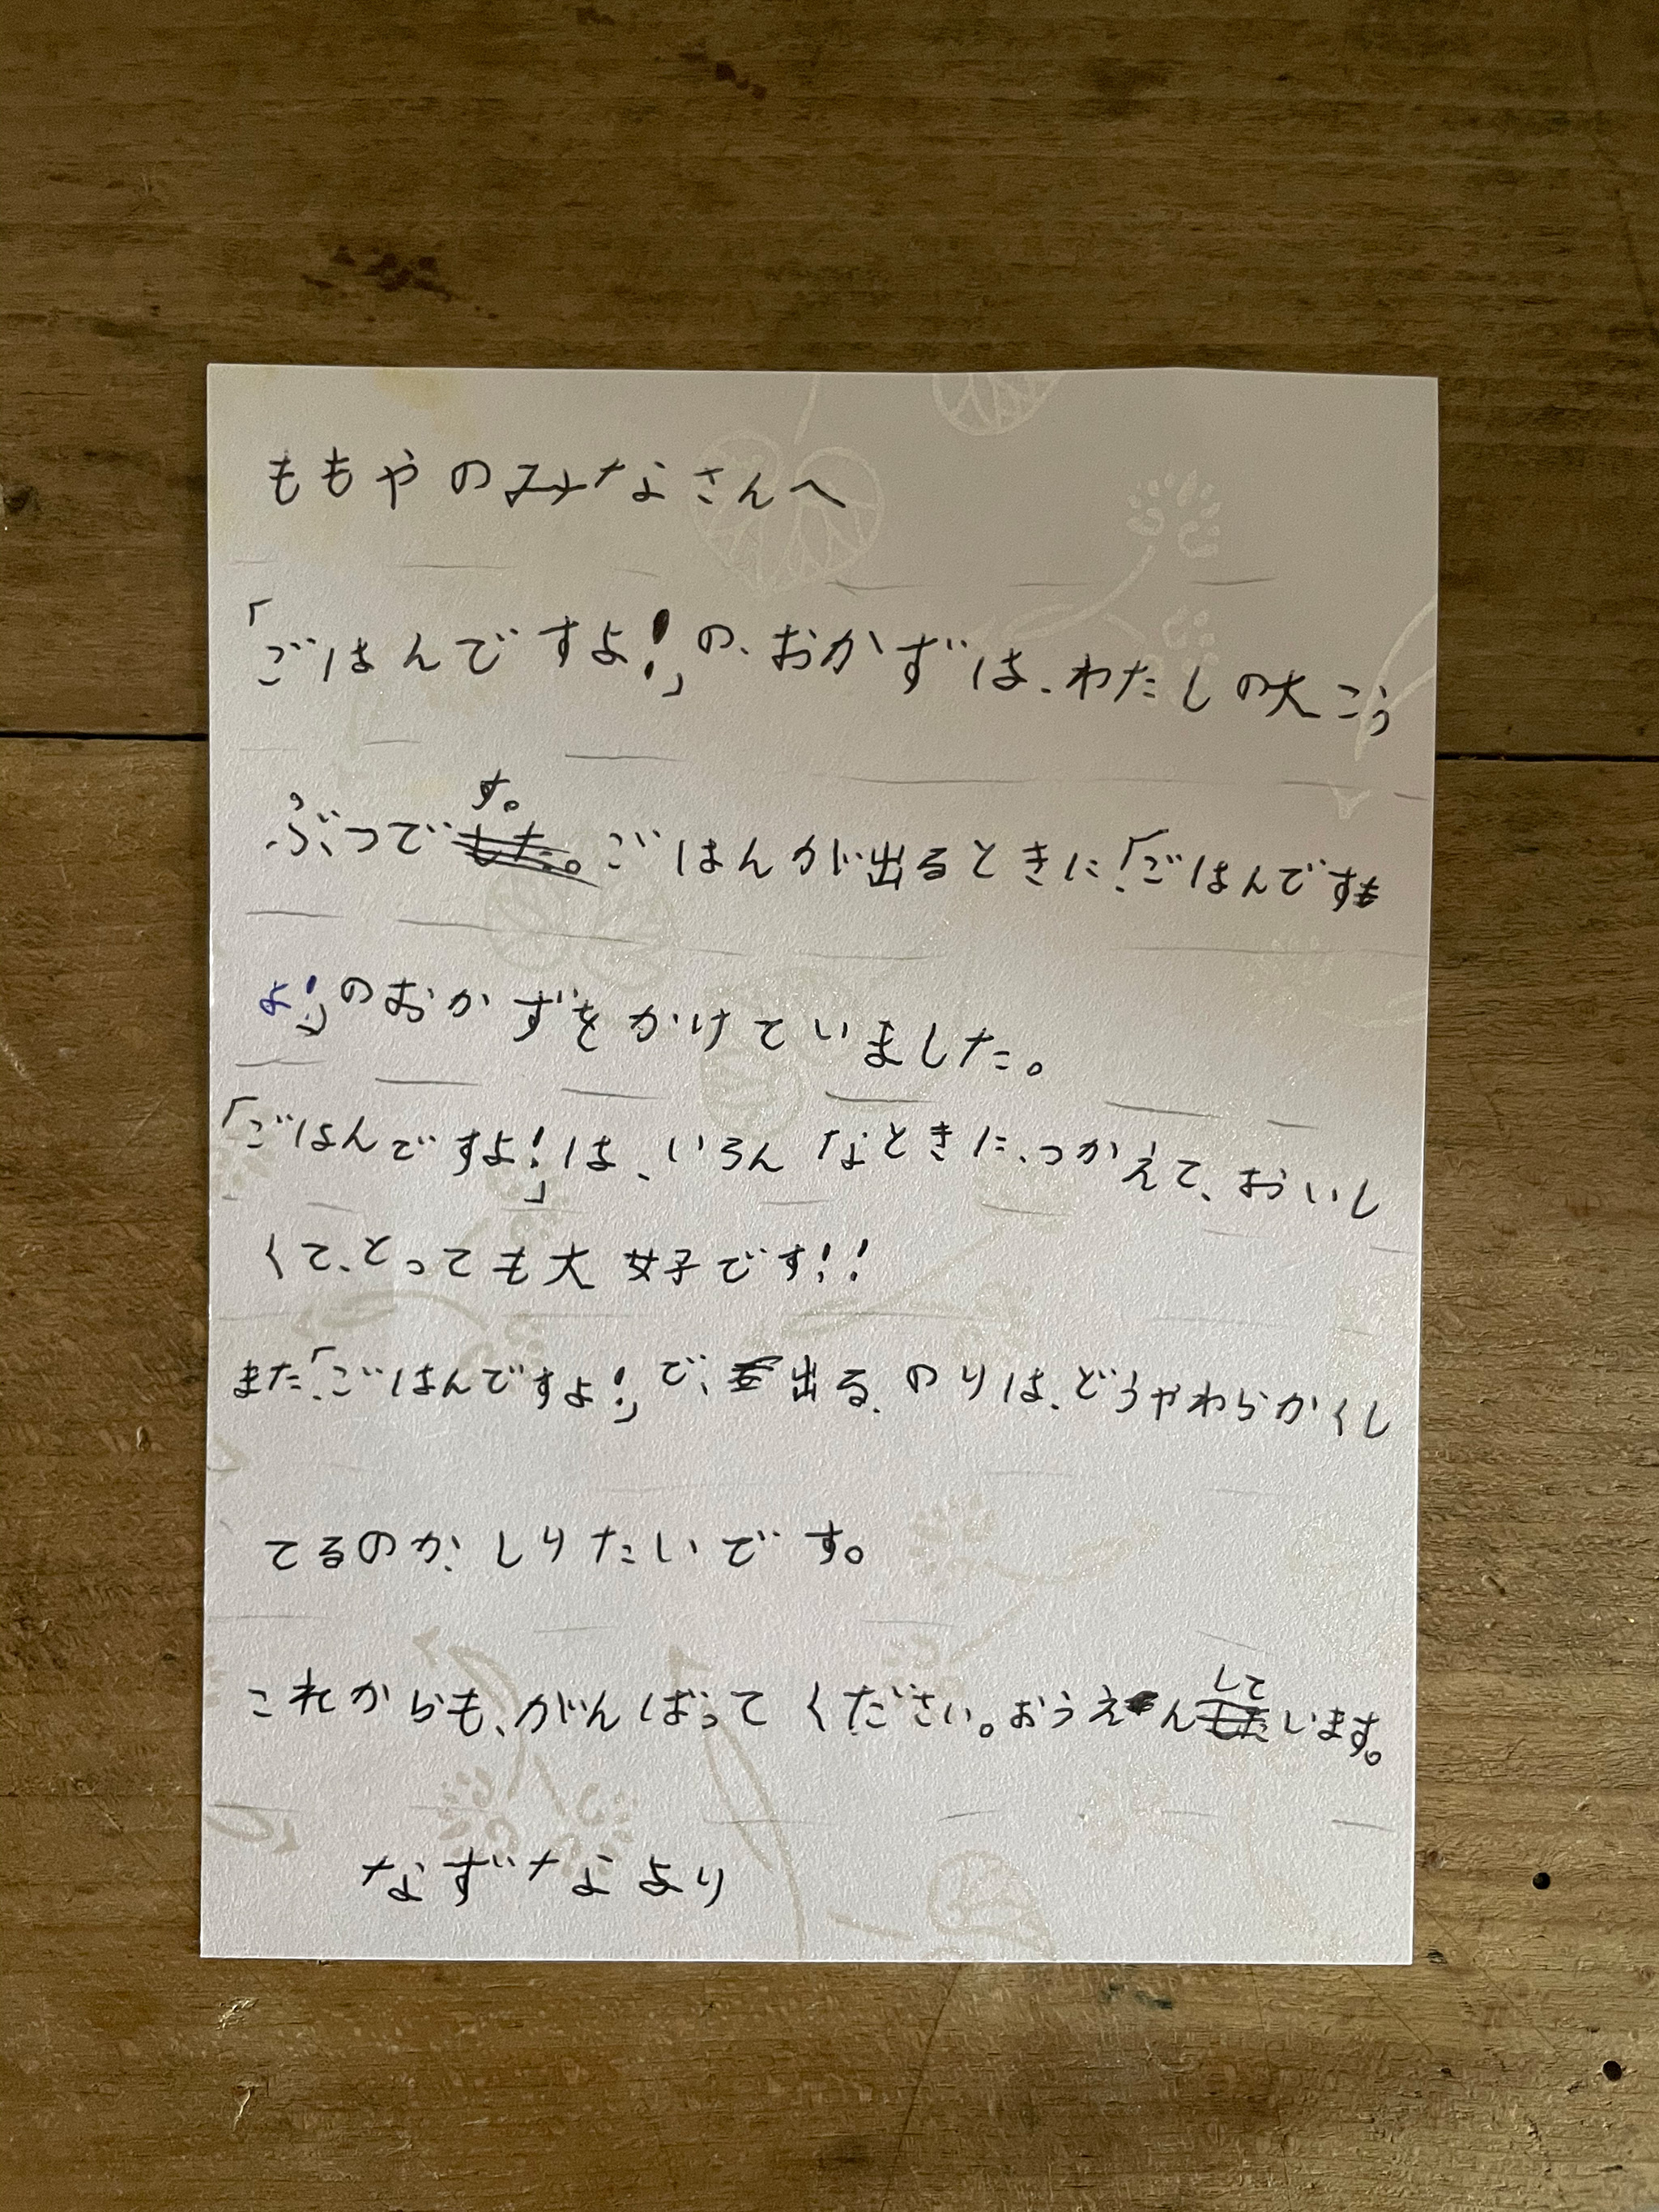 ももやのみなさんへ
「ごはんですよ!」の、おかずは、わたしの大こう
ぶつです。ごはんが出るときに、「ごはんです
よ!」のおかずをかけていました。
「ごはんですよ!」は、いろんなときに、つかえて、おいし
くて、とっても大好です!!
また、「ごはんですよ!」で、出る、のりは、どうやわらかくし
てるのか、しりたいです。
これからも、がんばってください。おうえんしています。
なずなより